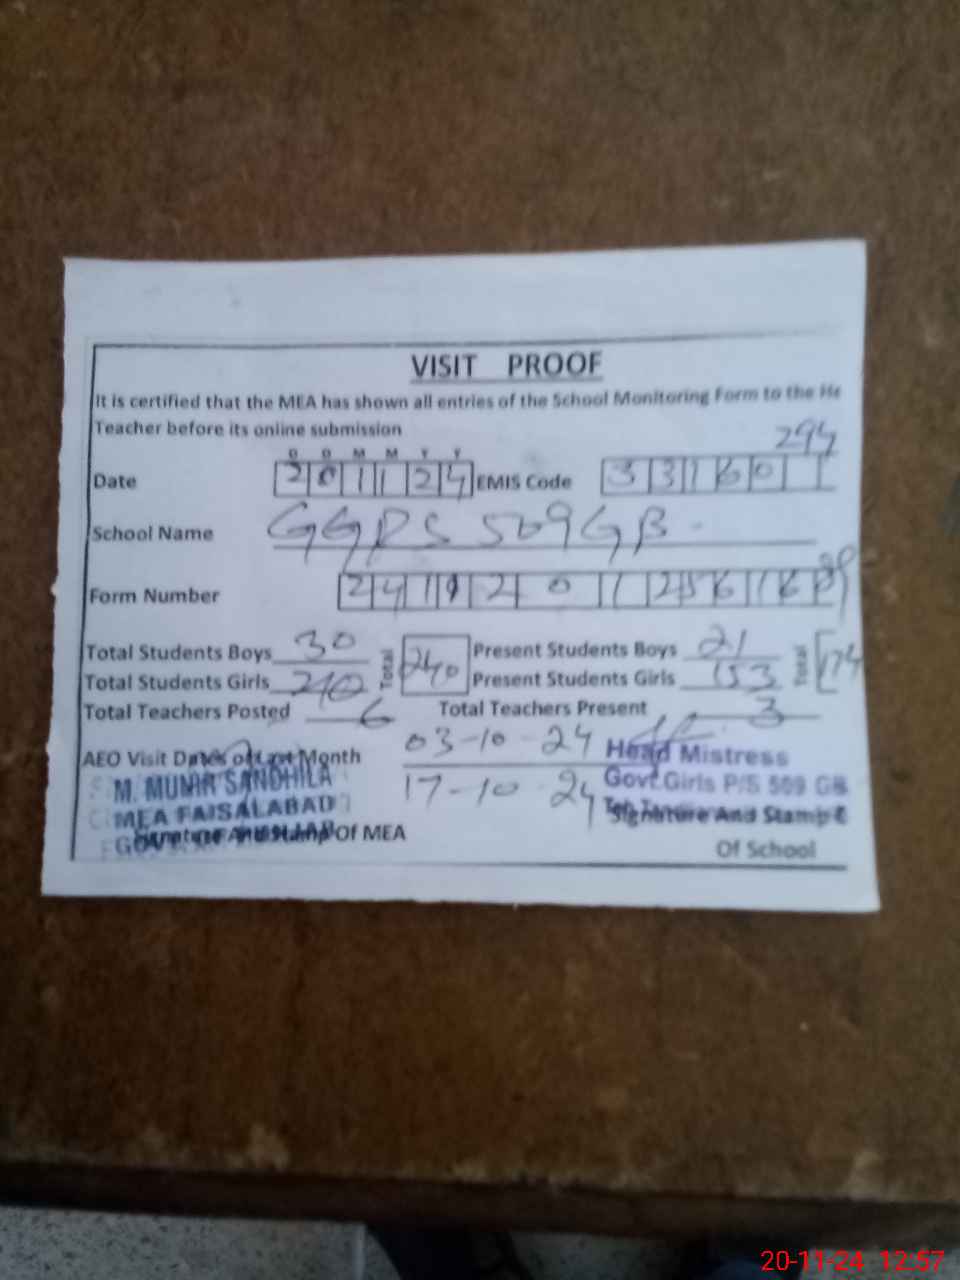 VISIT PROOF
It is certified that the MEA has shown all entries of the School Monitoring Form to the He
Teacher before its online submission
D D M M Y Y
Date 201124 EMIS Code 33160 294
School Name GGPS 509 GB
Form Number
Total Students Boys 30 Total 240 Present Students Boys 21 Total 174
Total Students Girls 210 Present Students Girls 153
Total Teachers Posted 6 Total Teachers Present 3
AEO Visit Dates of Last Month 03-10-24
17-10-24
M. MUNIR SANDHILA
MEA FAISALABAD
Signature And Stamp Of MEA
Head Mistress
Govt. Girls P/S 509 GB
Signature And Stamp
Of School
20-11-24 12:57